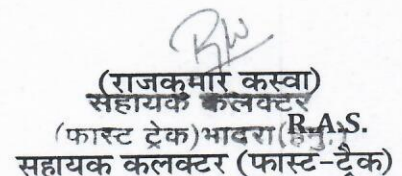 (राजकुमार कस्वा)
सहायक कलक्टर
(फास्ट ट्रेक)भादरा(हनु.)
R.A.S.
सहायक कलक्टर (फास्ट-ट्रैक)